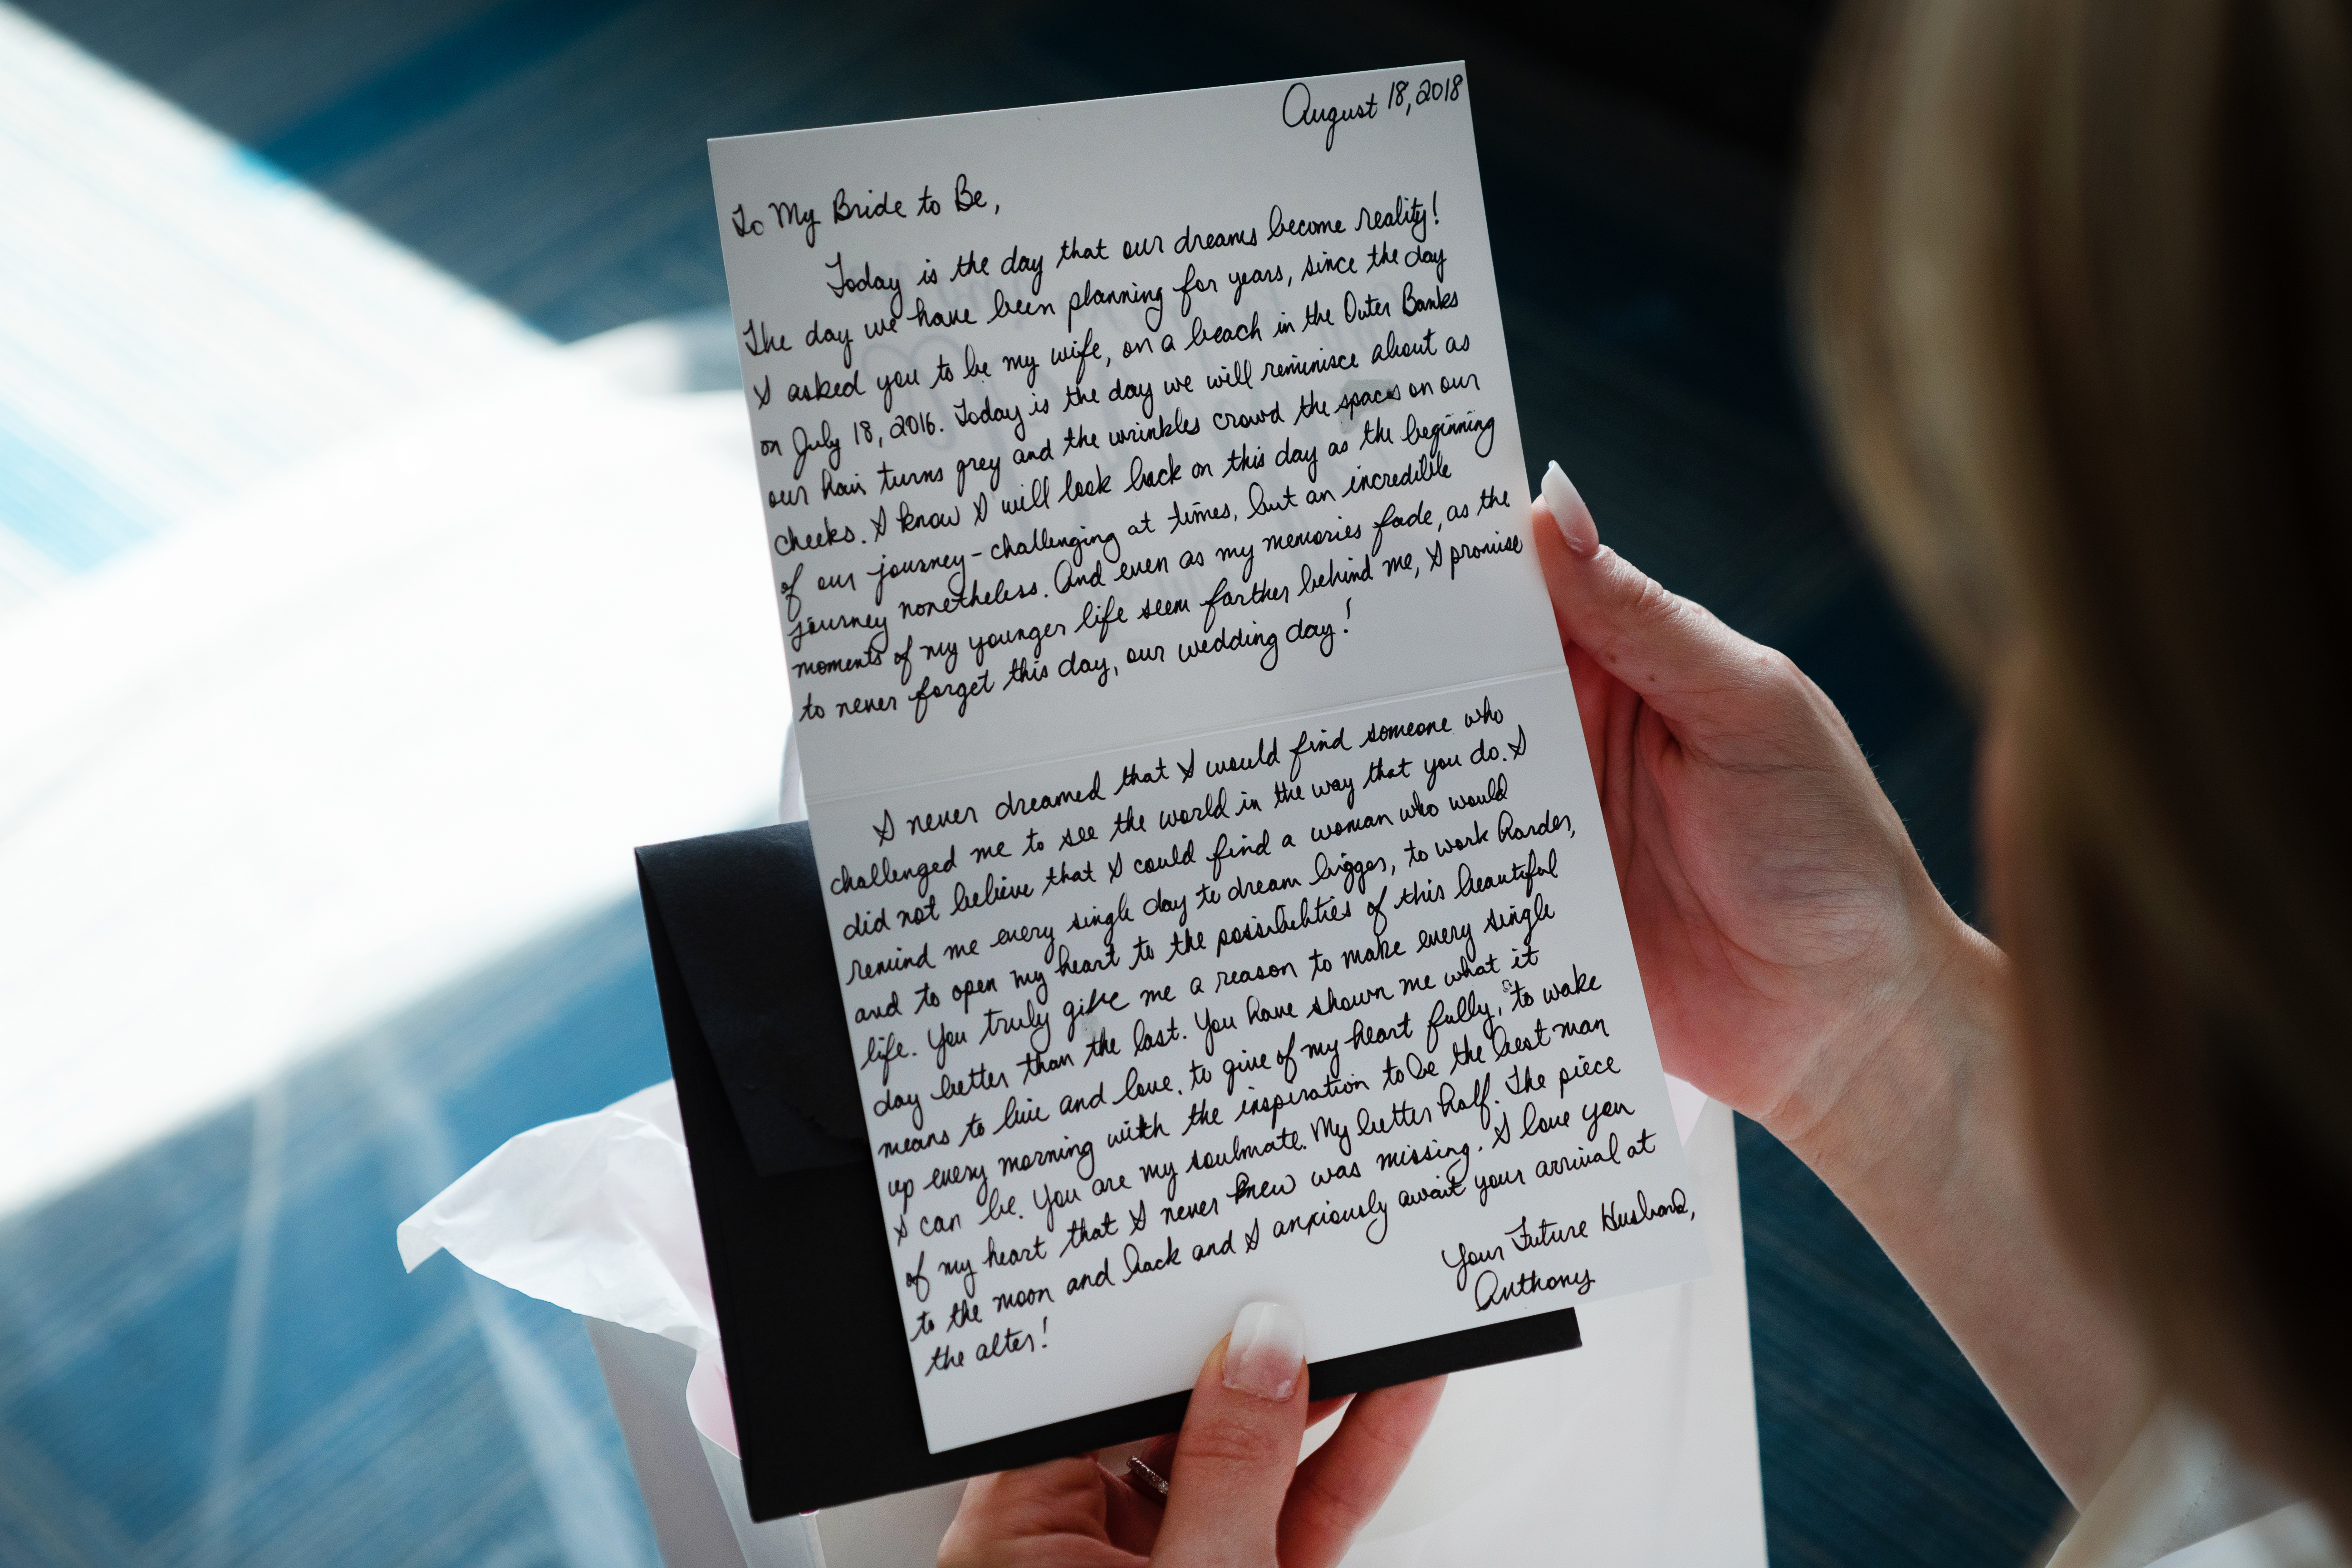 August 18, 2018
To My Bride to Be,
Today is the day that our dreams become reality!
The day we have been planning for years, since the day
I asked you to be my wife, on a beach in the Outer Banks
on July 18, 2016. Today is the day we will reminisce about as
our hair turns grey and the wrinkles crowd the spaces on our
cheeks. I know I will look back on this day as the beginning
of our journey - challenging at times, but an incredible
journey nonetheless. And even as my memories fade, as the
moments of my younger life seem farther behind me, I promise
to never forget this day, our wedding day!
I never dreamed that I would find someone who
challenged me to see the world in the way that you do. I
did not believe that I could find a woman who would
remind me every single day to dream bigger, to work harder,
and to open my heart to the possibilities of this beautiful
life. You truly give me a reason to make every single
day better than the last. You have shown me what it
means to live and love, to give of my heart fully, to wake
up every morning with the inspiration to be the best man
I can be. You are my soulmate. My better half. The piece
of my heart that I never knew was missing. I love you
to the moon and back and I anxiously await your arrival at
the alter!
Your Future Husband,
Anthony